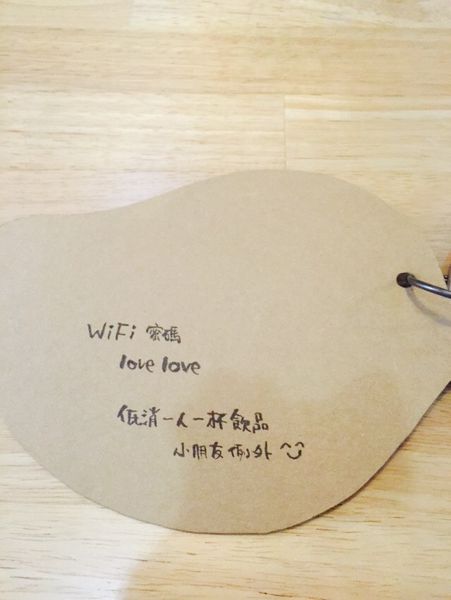 WiFi 密碼
love love
低消一人一杯飲品
小朋友例外 ^^